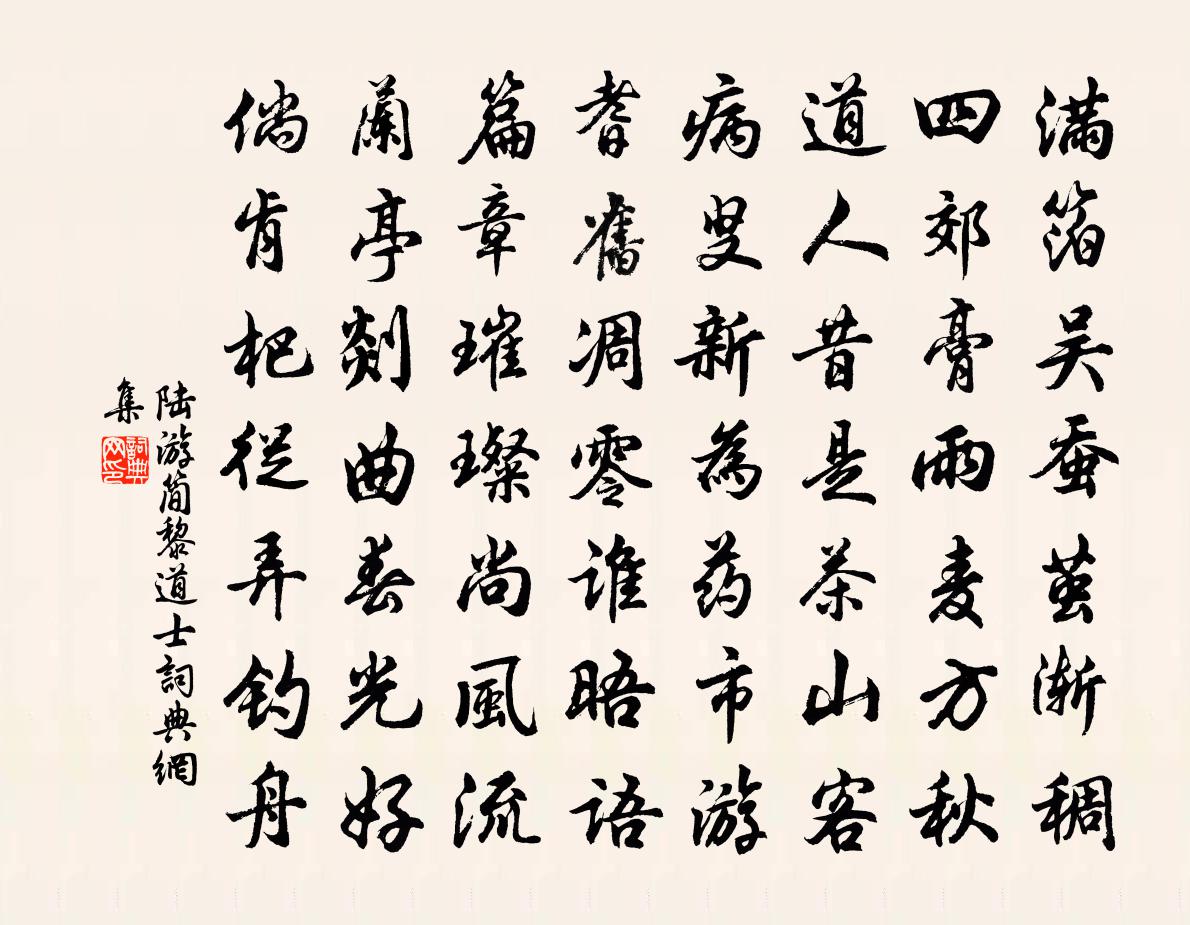 满箔吴蚕茧渐稠
四郊膏雨麦方秋
道人昔是茶山客
病叟新為药市游
耆舊凋零谁晤语
篇章璀璨尚風流
蘭亭剡曲春光好
倘肯杷從弄钓舟
陆游简黎道士詞典網
集
詞典网印